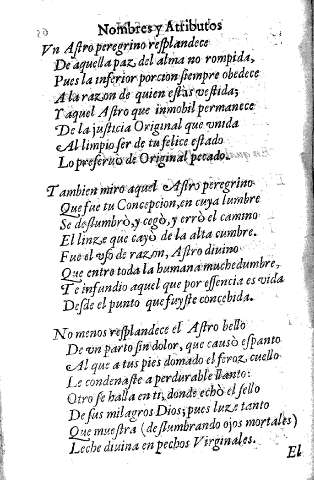 Nombres y Atributos
Vn Astro peregrino resplandece
De aquella paz del alma no rompida,
Pues la inferior porcion siempre obedece
A la razon de quien estàs vestida;
Y aquel Astro que inmobil permanece
De la justicia Original que vnida
Al limpio ser de tu felice estado
Lo preseruò de Original pecado.
Tambien miro aquel Astro peregrino
Que fue tu Concepcion, en cuya lumbre
Se deslumbrò, y cegò, y errò el camino
El linze que cayò de la alta cumbre.
Fue el vso de razon, Astro diuino
Que entre toda la humana muchedumbre,
Te infundio aquel que por essencia es vida
Desde el punto que fuyste concebida.
No menos resplandece el Astro bello
De vn parto sin dolor, que causò espanto
Al que a tus pies domado el feroz cuello
Le condenaste a perdurable llanto:
Otro se halla en ti, donde echò el sello
De sus milagros Dios; pues luze tanto
Que muestra (deslumbrando ojos mortales)
Leche diuina en pechos Virginales.
El